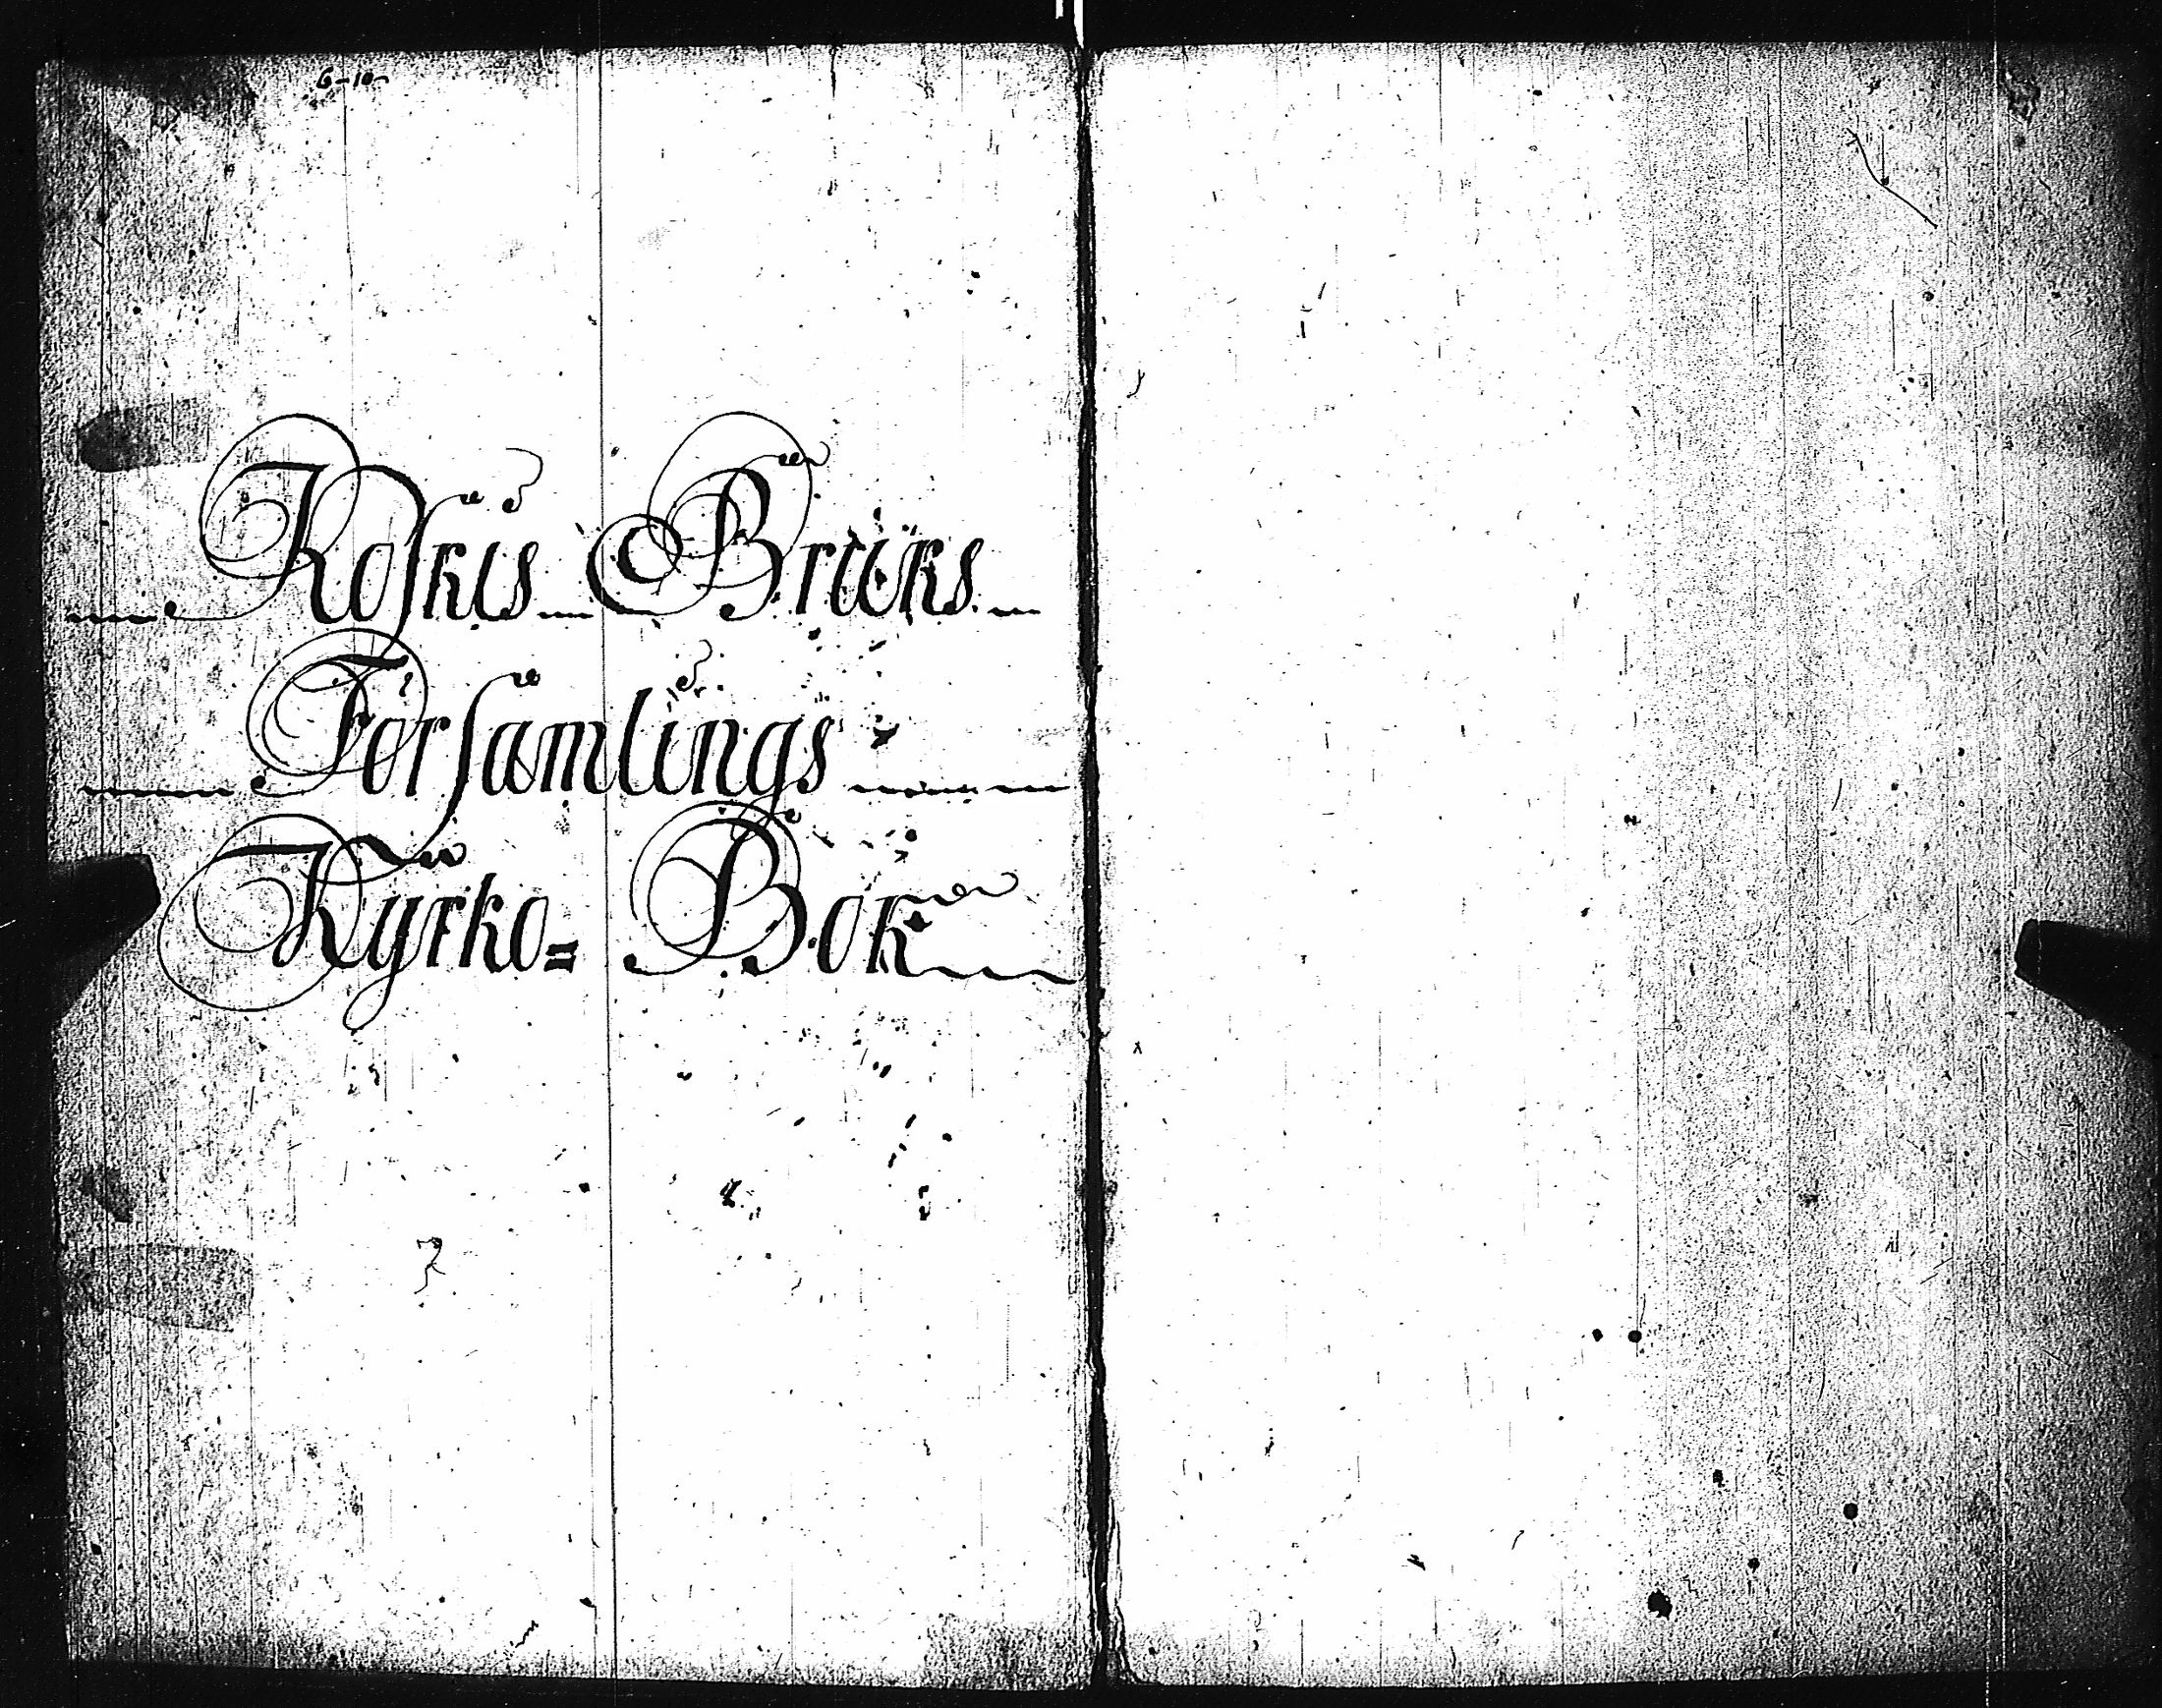 6-10-
Koskis Bruks
Församlings
Kyrko= Bok